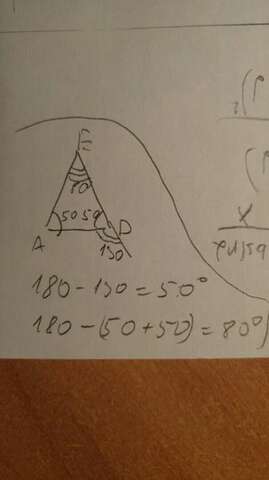 E
80
50 50
A D
130
180-130=50°
180-(50+50)=80°